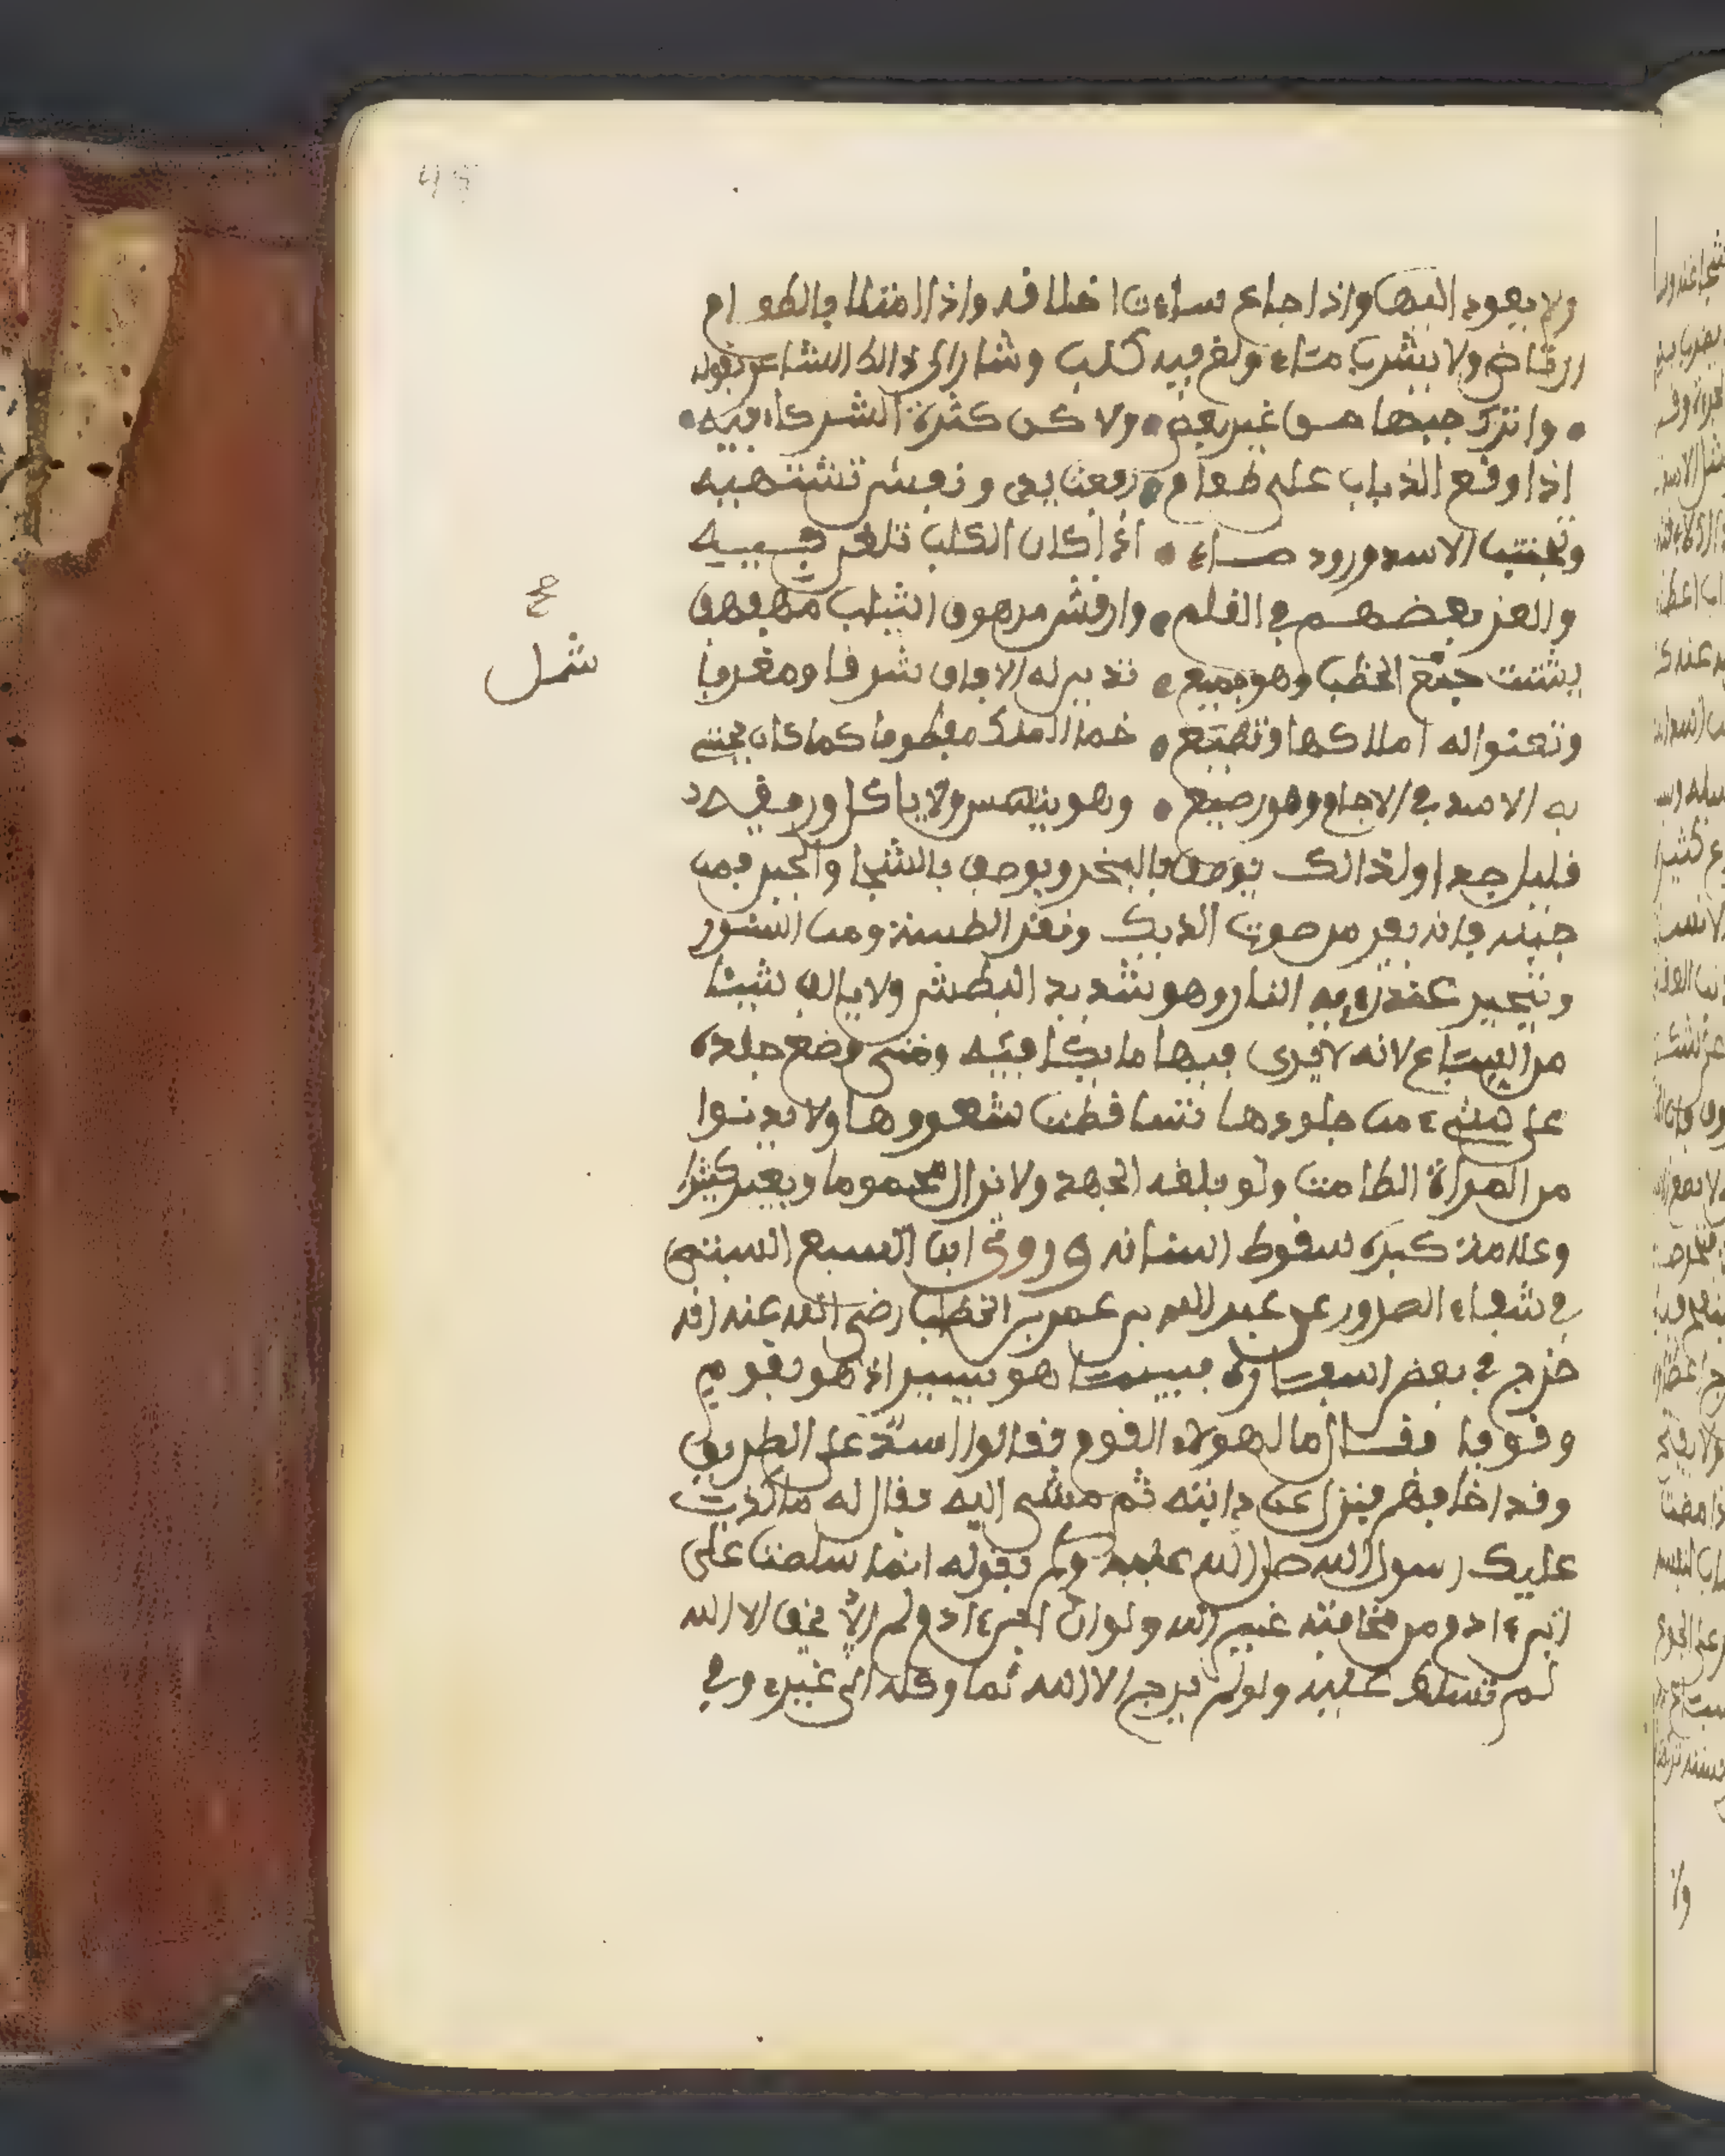 ولا يعود اليها واذا جاع ساءت اخلاقه واذا امتلا بالطعام
ارتاض ولا يشرب من ماء ولغ فيه كلب وشار الى ذالك الشاعر بقوله
واترك حبها من غير بغض ولاكن كثرة الشركاء فيه
اذا وقع الذباب على طعام رفعت يدي ونفسي تشتهيه
وتجتنب الاسد ورود ماء اذا كان الكلب تلغ فيه
والغز بعضهم في القلم وارقش مرهوف الشباب مهفهف
يشتت شمل الخطب وهو جميع تدين له الافاق شرقا ومغربا
وتعنوا له املاكها وتطيع حما الملك مفطوما كما كان تحتمي
به الاسد في الاجام وهو رضيع وهو ينهس ولا ياكل وريقه
قليل جدا ولذالك يوصف بالبخر ويوصف بالشجا والجبن فمن
جبنه فانه يفر من صوت الديك ونقر الطست ومن السنور
ويتحير عند رءية النار وهو شديد البطش ولا يالف شيئا
من السباع لانه لا يرى فيها ما يكافيه ومتى وضع جلده
على شيء من جلودها تساقطت شعورها ولا يدنوا
من المراة الطامث ولو بلغه الجهد ولا يزال محموما ويعمر كثيرا
وعلامة كبره سقوط اسنانه وروى ابن السبع السبتي
في شفاء الصدور عن عبد الله بن عمر بن الخطاب رضي الله عنه انه
خرج في بعض اسفاره فبينما هو يسير اذ هو بقوم
وقوفا فقال ما لهولاء القوم فقالوا اسد على الطريق
وقد اخافهم فنزل عن دابته ثم مشى اليه فقال له ما كذب
عليك رسول الله صلى الله عليه وسلم بقوله انما سلطت على
ابن ءادم من مخافته غير الله ولو ان ابن ءادم لم يخف الا الله
لم تسلط عليه ولو لم يرج الا الله لما وكله الى غيره وفي
صح
شمل